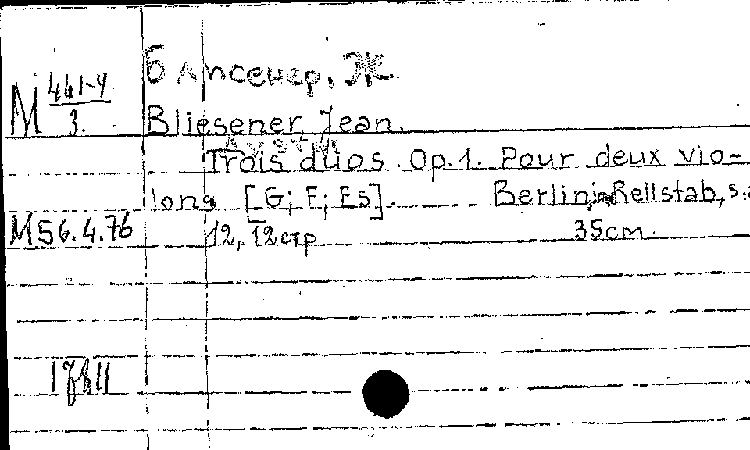 М 441-4
3.
Блисенер, Ж
Bliesener Jean.
Trois duos. Op.1. Pour deux vio-
lons [G; F; Es]. Berlin, Rellstab, s.a
М 56.4.76
12, 12 стр 35cm.